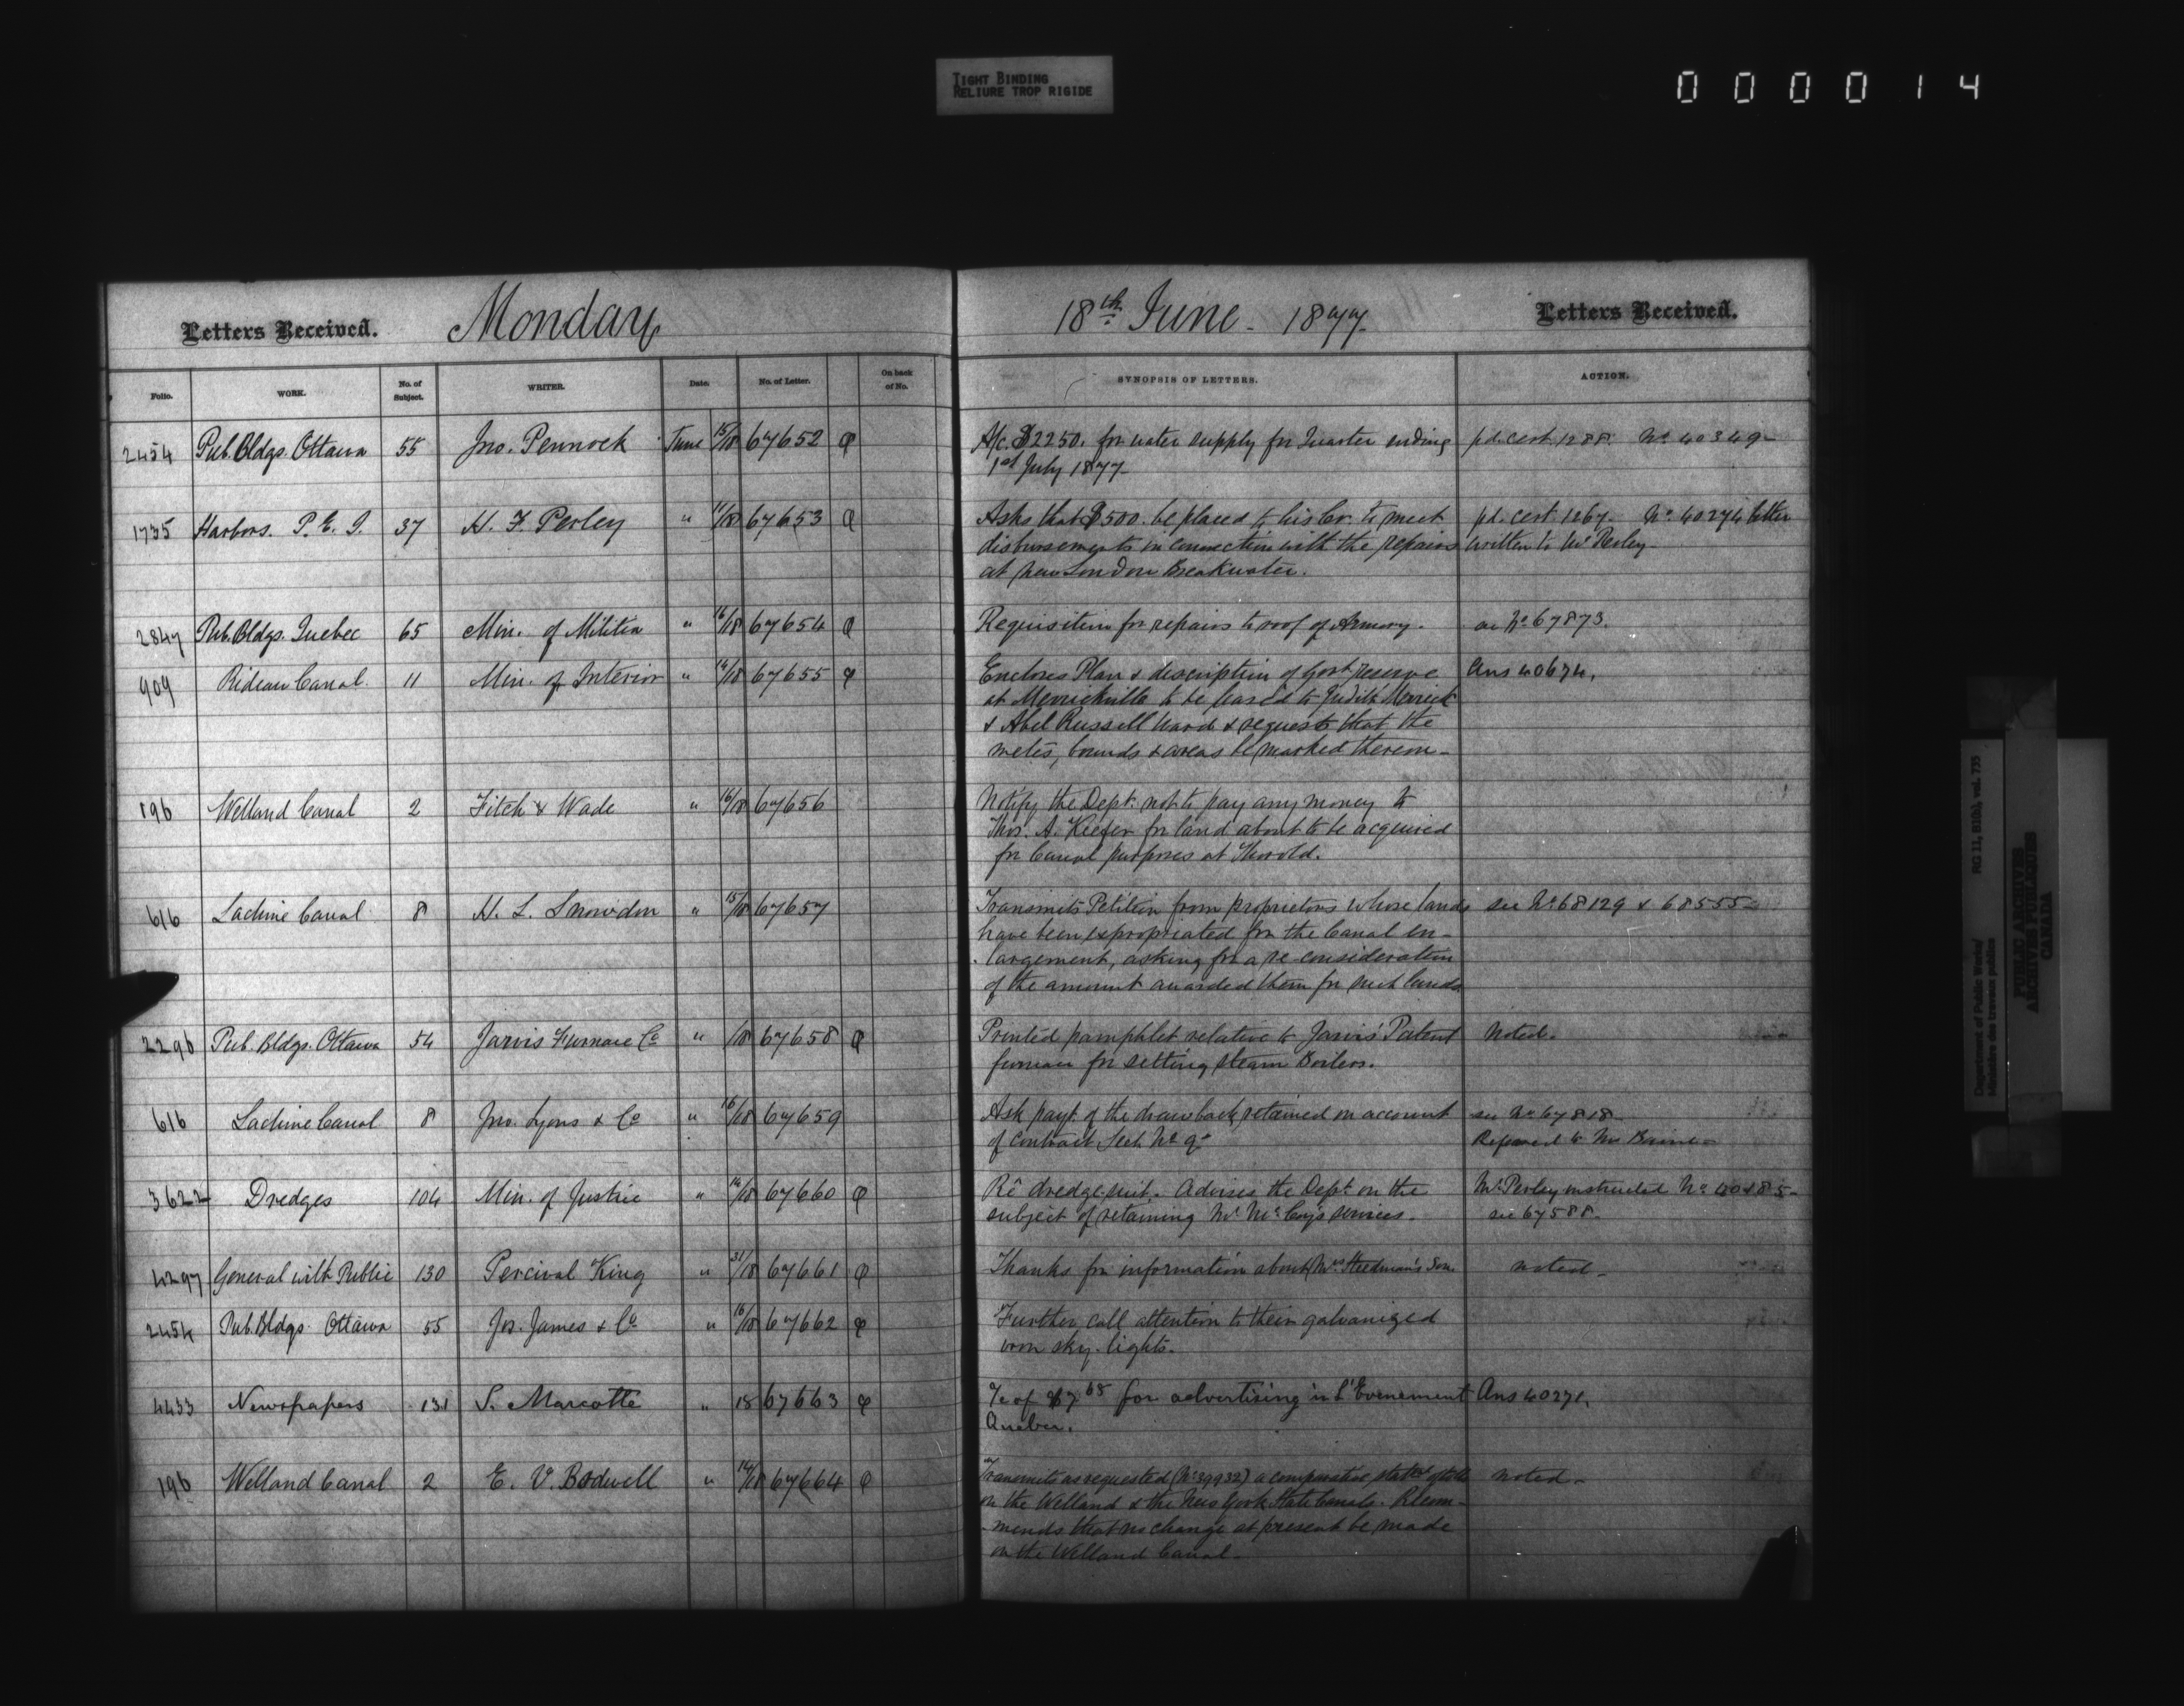 TIGHT BINDING
RELIURE TROP RIGIDE
000014
Letters Received. Monday 18th June - 1877 - Letters Received.
Folio. WORK. No. of Subject. WRITER. Date. No. of Letter. On back of No. SYNOPSIS OF LETTERS. ACTION.
2454 Pub. Bldgs. Ottawa 55 Jno. Pennock June 15/18 67652 A/c. $2250. for water supply for Quarter ending pd. cert. 1288. No. 40349-
1st July 1877-
1735 Harbors. P. E. I. 37 H. F. Perley " 11/18 67653 Asks that $500. be placed to his Cr. to meet pd. cert. 1267. No. 40274 letter
disbursements in connection with the repairs written to Mr Perley-
at New London Breakwater.
2847 Pub. Bldgs. Quebec 65 Min. of Militia " 16/18 67654 Requisition for repairs to roof of Armory. No 67873.
909 Rideau Canal. 11 Min. of Interior " 14/18 67655 Encloses Plan & description of Govt reserve Ans 40674.
at Merrickville to be leased to Judith Merrick
& Abel Russell Ward & requests that the
metes, bounds & areas be marked thereon-
196 Welland Canal 2 Fitch & Wade " 16/18 67656 Notify the Dept. not to pay any money to
Thos. A. Keefer for land about to be acquired
for Canal purposes at Thorold.
616 Lachine Canal 8 H. L. Snowdon " 15/18 67657 Transmits Petition from proprietors whose lands see No 68129 & 68555-
have been expropriated for the Canal en-
largement, asking for a re-consideration
of the amount awarded them for such lands.
2296 Pub. Bldgs. Ottawa 54 Jarvis Furnace Co " /18 67658 Printed pamphlet relative to Jarvis' Patent Noted.
furnace for setting steam Boilers.
616 Lachine Canal 8 Jno. Lyons & Co " 16/18 67659 Ask payt. of the drawback retained on account see No 67818-
of contract Sect. No 9- Referred to Mr
3622 Dredges 104 Min. of Justice " 14/18 67660 Re dredge suit. Advises the Dept. on the Mr Perley instructed No
subject of retaining Mr services. see 67588-
4297 General with Public 130 Percival King " 31/18 67661 Thanks for information about Mrs Steedman's Son. noted-
2454 Pub. Bldgs. Ottawa 55 Jos. James & Co " 16/18 67662 Further call attention to their galvanized
iron sky-lights.
4433 Newspapers 131 S. Marcotte " 18 67663 A/c of $7 68 for advertising in L'Evenement Ans 40271.
Quebec.
196 Welland Canal 2 E. V. Bodwell " 14/18 67664 Transmits as requested (No 39932) a comparative statt of tolls noted-
on the Welland & the New York State Canals. Recom-
mends that no change at present be made
on the Welland Canal-
Department of Public Works/
Ministère des travaux publics
RG 11, B1(b), vol. 735
PUBLIC ARCHIVES
ARCHIVES PUBLIQUES
CANADA